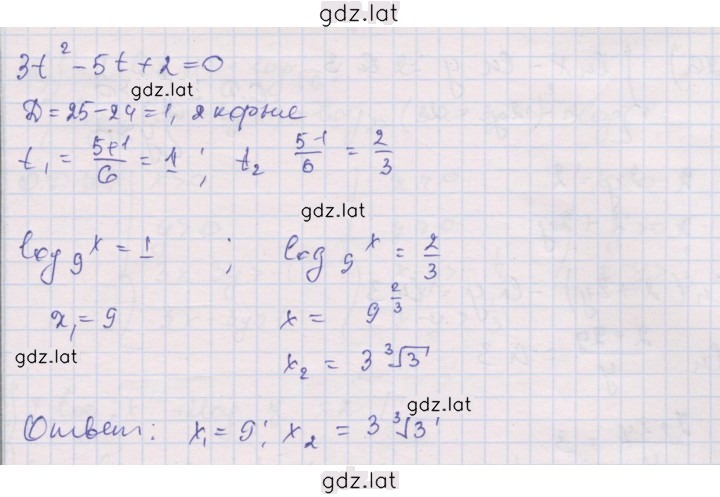 gdz.lat
3t² - 5t + 2 = 0
gdz.lat
D = 25 - 24 = 1, 2 корние
t₁ = (5+1)/6 = 1 ; t₂ (5-1)/6 = 2/3
gdz.lat
log₉ x = 1 ; log₉ x = 2/3
x₁ = 9 x = 9^(2/3)
gdz.lat x₂ = 3∛3
gdz.lat
Ответ: x₁ = 9; x₂ = 3∛3
gdz.lat